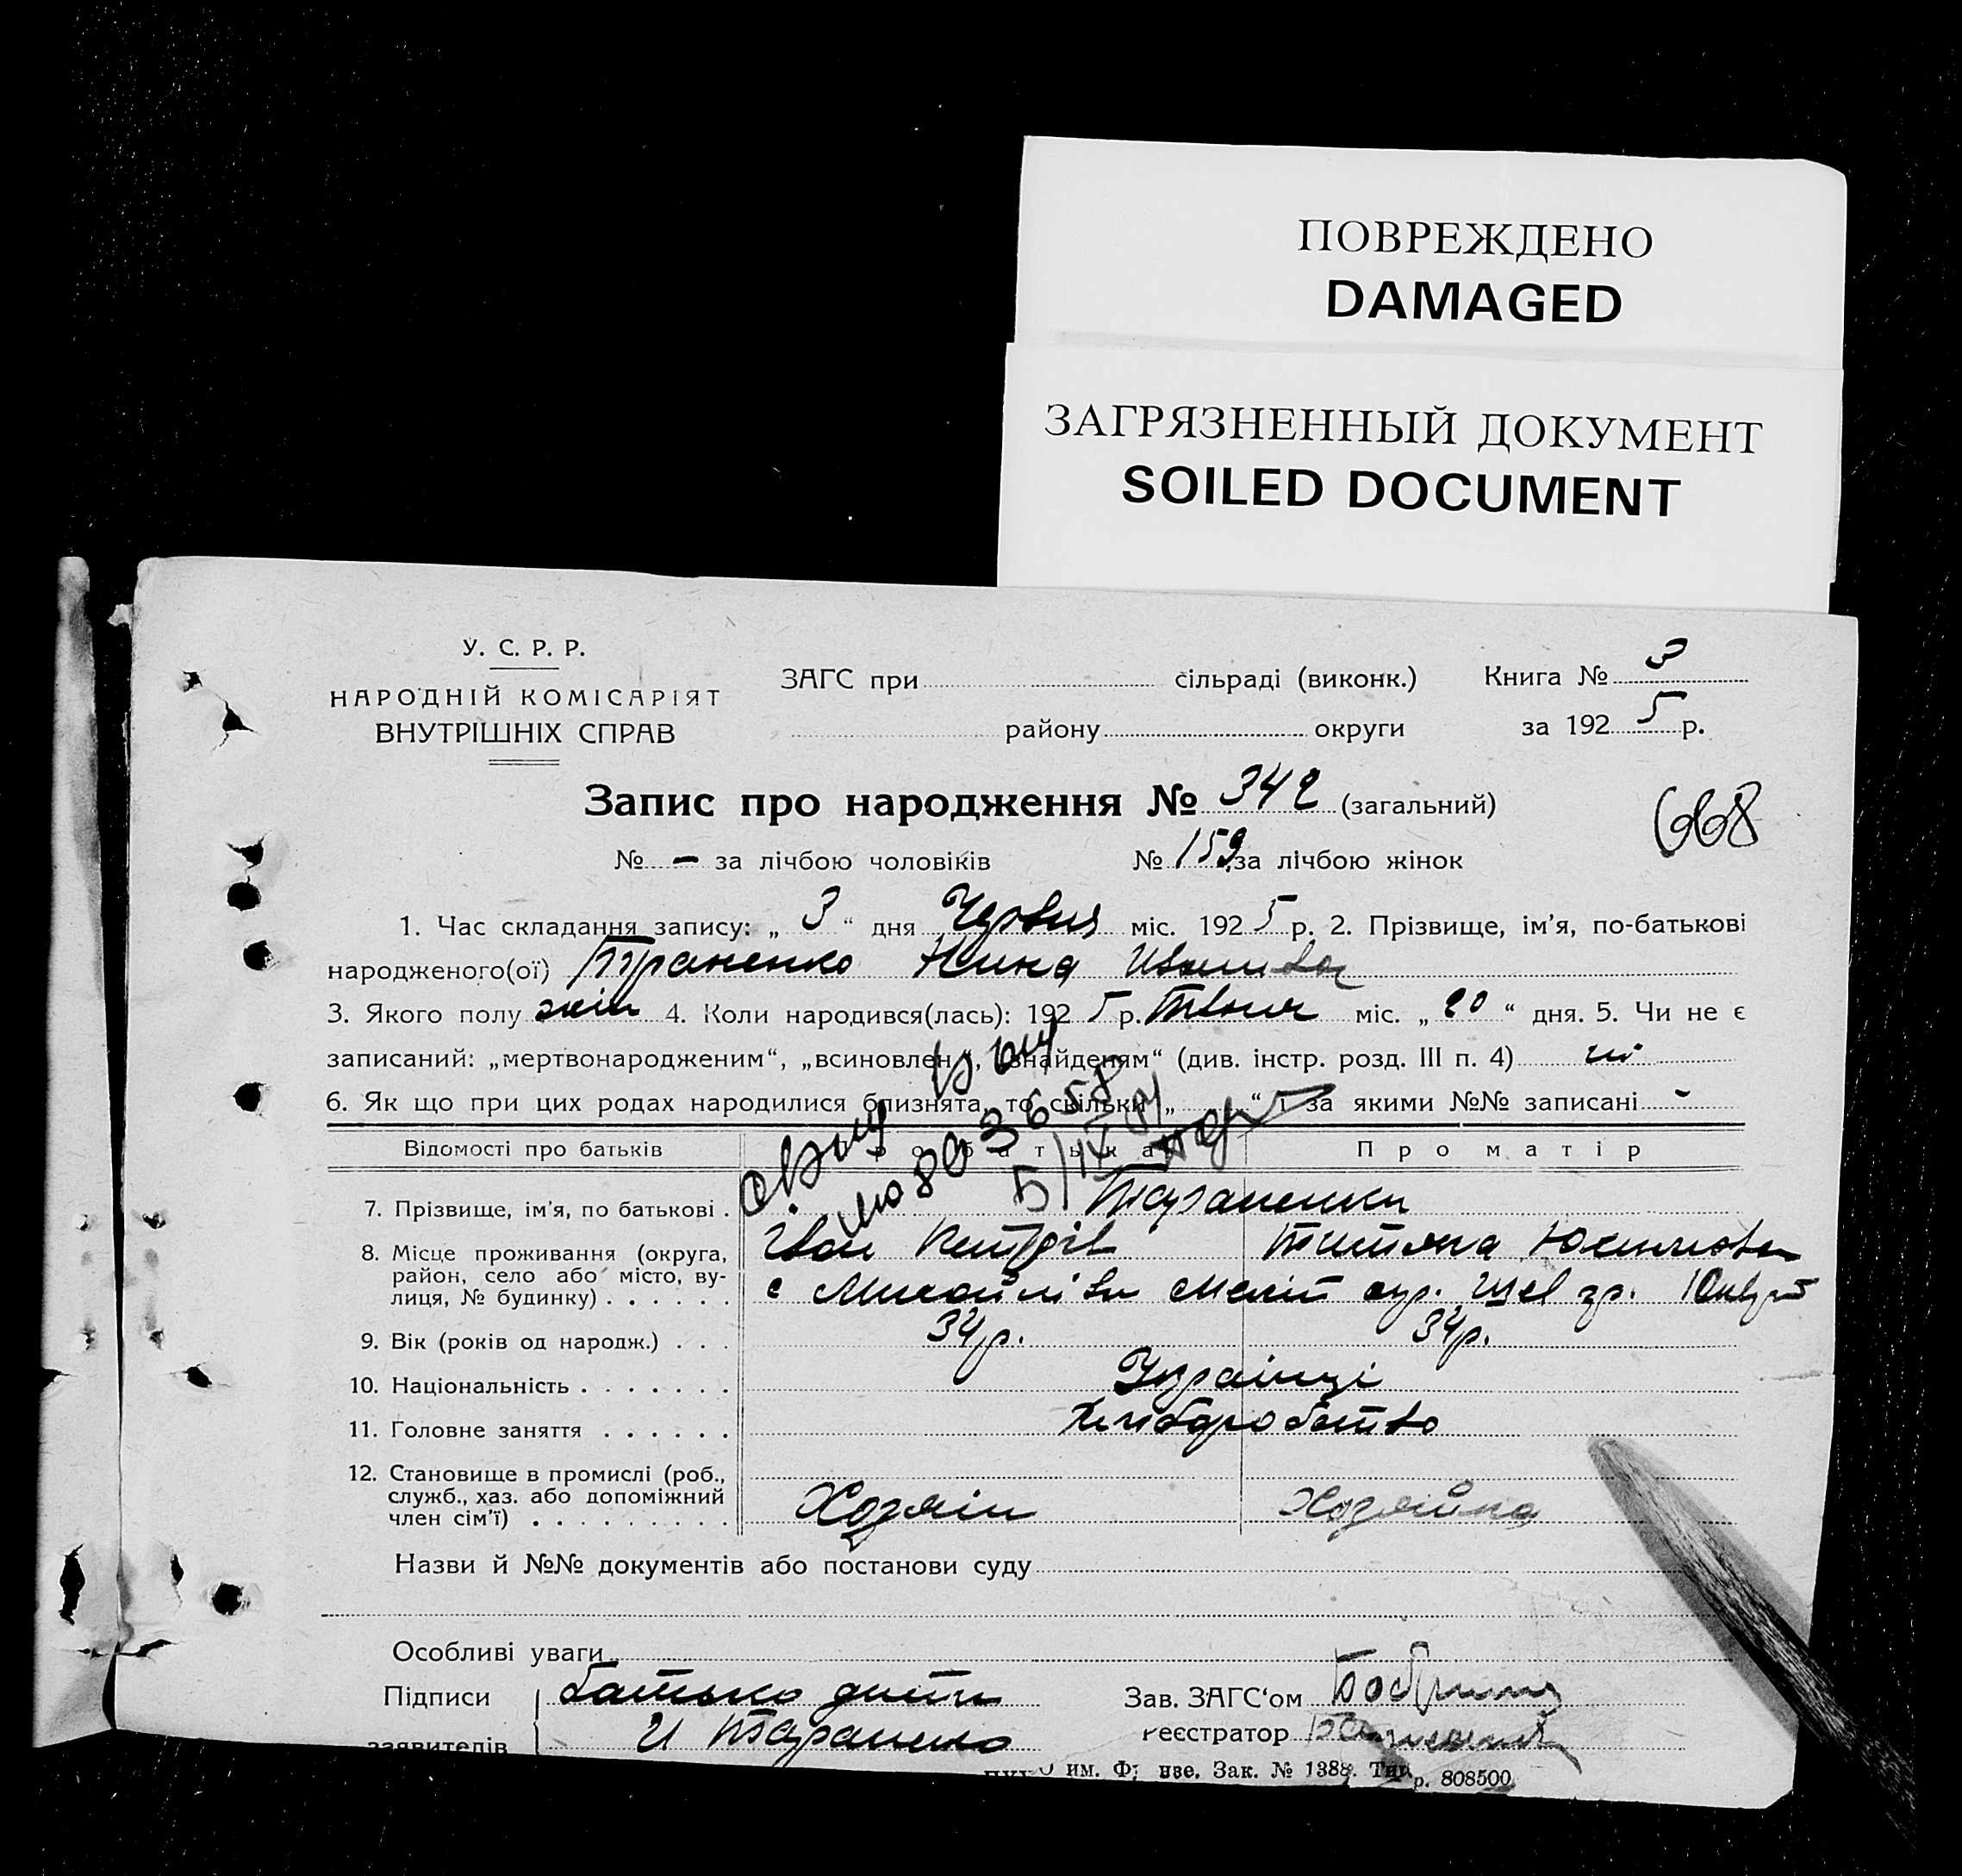 ПОВРЕЖДЕНО
DAMAGED
ЗАГРЯЗНЕННЫЙ ДОКУМЕНТ
SOILED DOCUMENT
У. С. Р. Р.
НАРОДНІЙ КОМІСАРІЯТ
ВНУТРІШНІХ СПРАВ
ЗАГС при сільраді (виконк.)
району округи
Книга № 3
за 192 5 р.
Запис про народження № 342 (загальний)
668
№ – за лічбою чоловіків № 159 за лічбою жінок
1. Час складання запису: „ 3 “ дня Червня міс. 192 5 р. 2. Прізвище, ім’я, по-батькові
народженого(ої) Нина
3. Якого полу жін 4. Коли народився(лась): 192 5 р. міс. „ 20 “ дня. 5. Чи не є
записаний: „мертвонародженим“, „всиновлен “, „знайденям“ (див. інстр. розд. III п. 4) ні
6. Як що при цих родах народилися близнята, то скільки „ “ і за якими №№ записані -
Відомості про батьків Про батька Про матір
7. Прізвище, ім’я, по батькові .
8. Місце проживання (округа,
район, село або місто, ву-
лиця, № будинку) . . . . . .
Іван
с Михайлівка Меліт окр.
9. Вік (років од народж.) . . . 34 р. 34 р.
10. Національність . . . . . . . Українці
11. Головне заняття . . . . . . Хліборобство
12. Становище в промислі (роб.,
служб., хаз. або допоміжний
член сім’ї) . . . . . . . . .
Хозяін Хозяйка
Назви й №№ документів або постанови суду
Особливі уваги
Підписи батько дити
заявителів И Тараненко
Зав. ЗАГС‘ом
реєстратор
им. Зак. № 1388. р. 808500